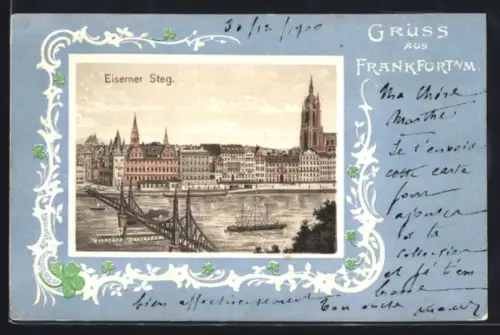 30/12/1900
GRUSS
AUS
FRANKFURT A/M.
Eiserner Steg.
Ma Chère
Marthe
Je t'envoie
cette carte
pour
ajouter
à ta
collection
et je t'em
brasse
bien affectueusement
Ton oncle